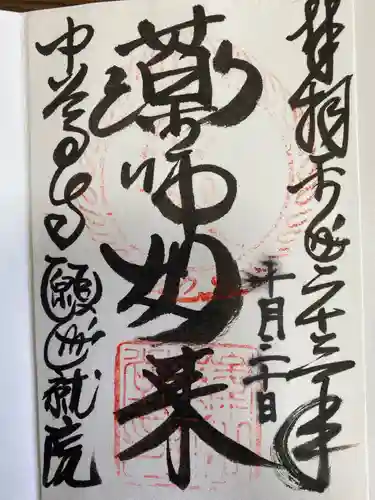 平成二十三年
十月二十日
薬師如来
中尊寺願成就院